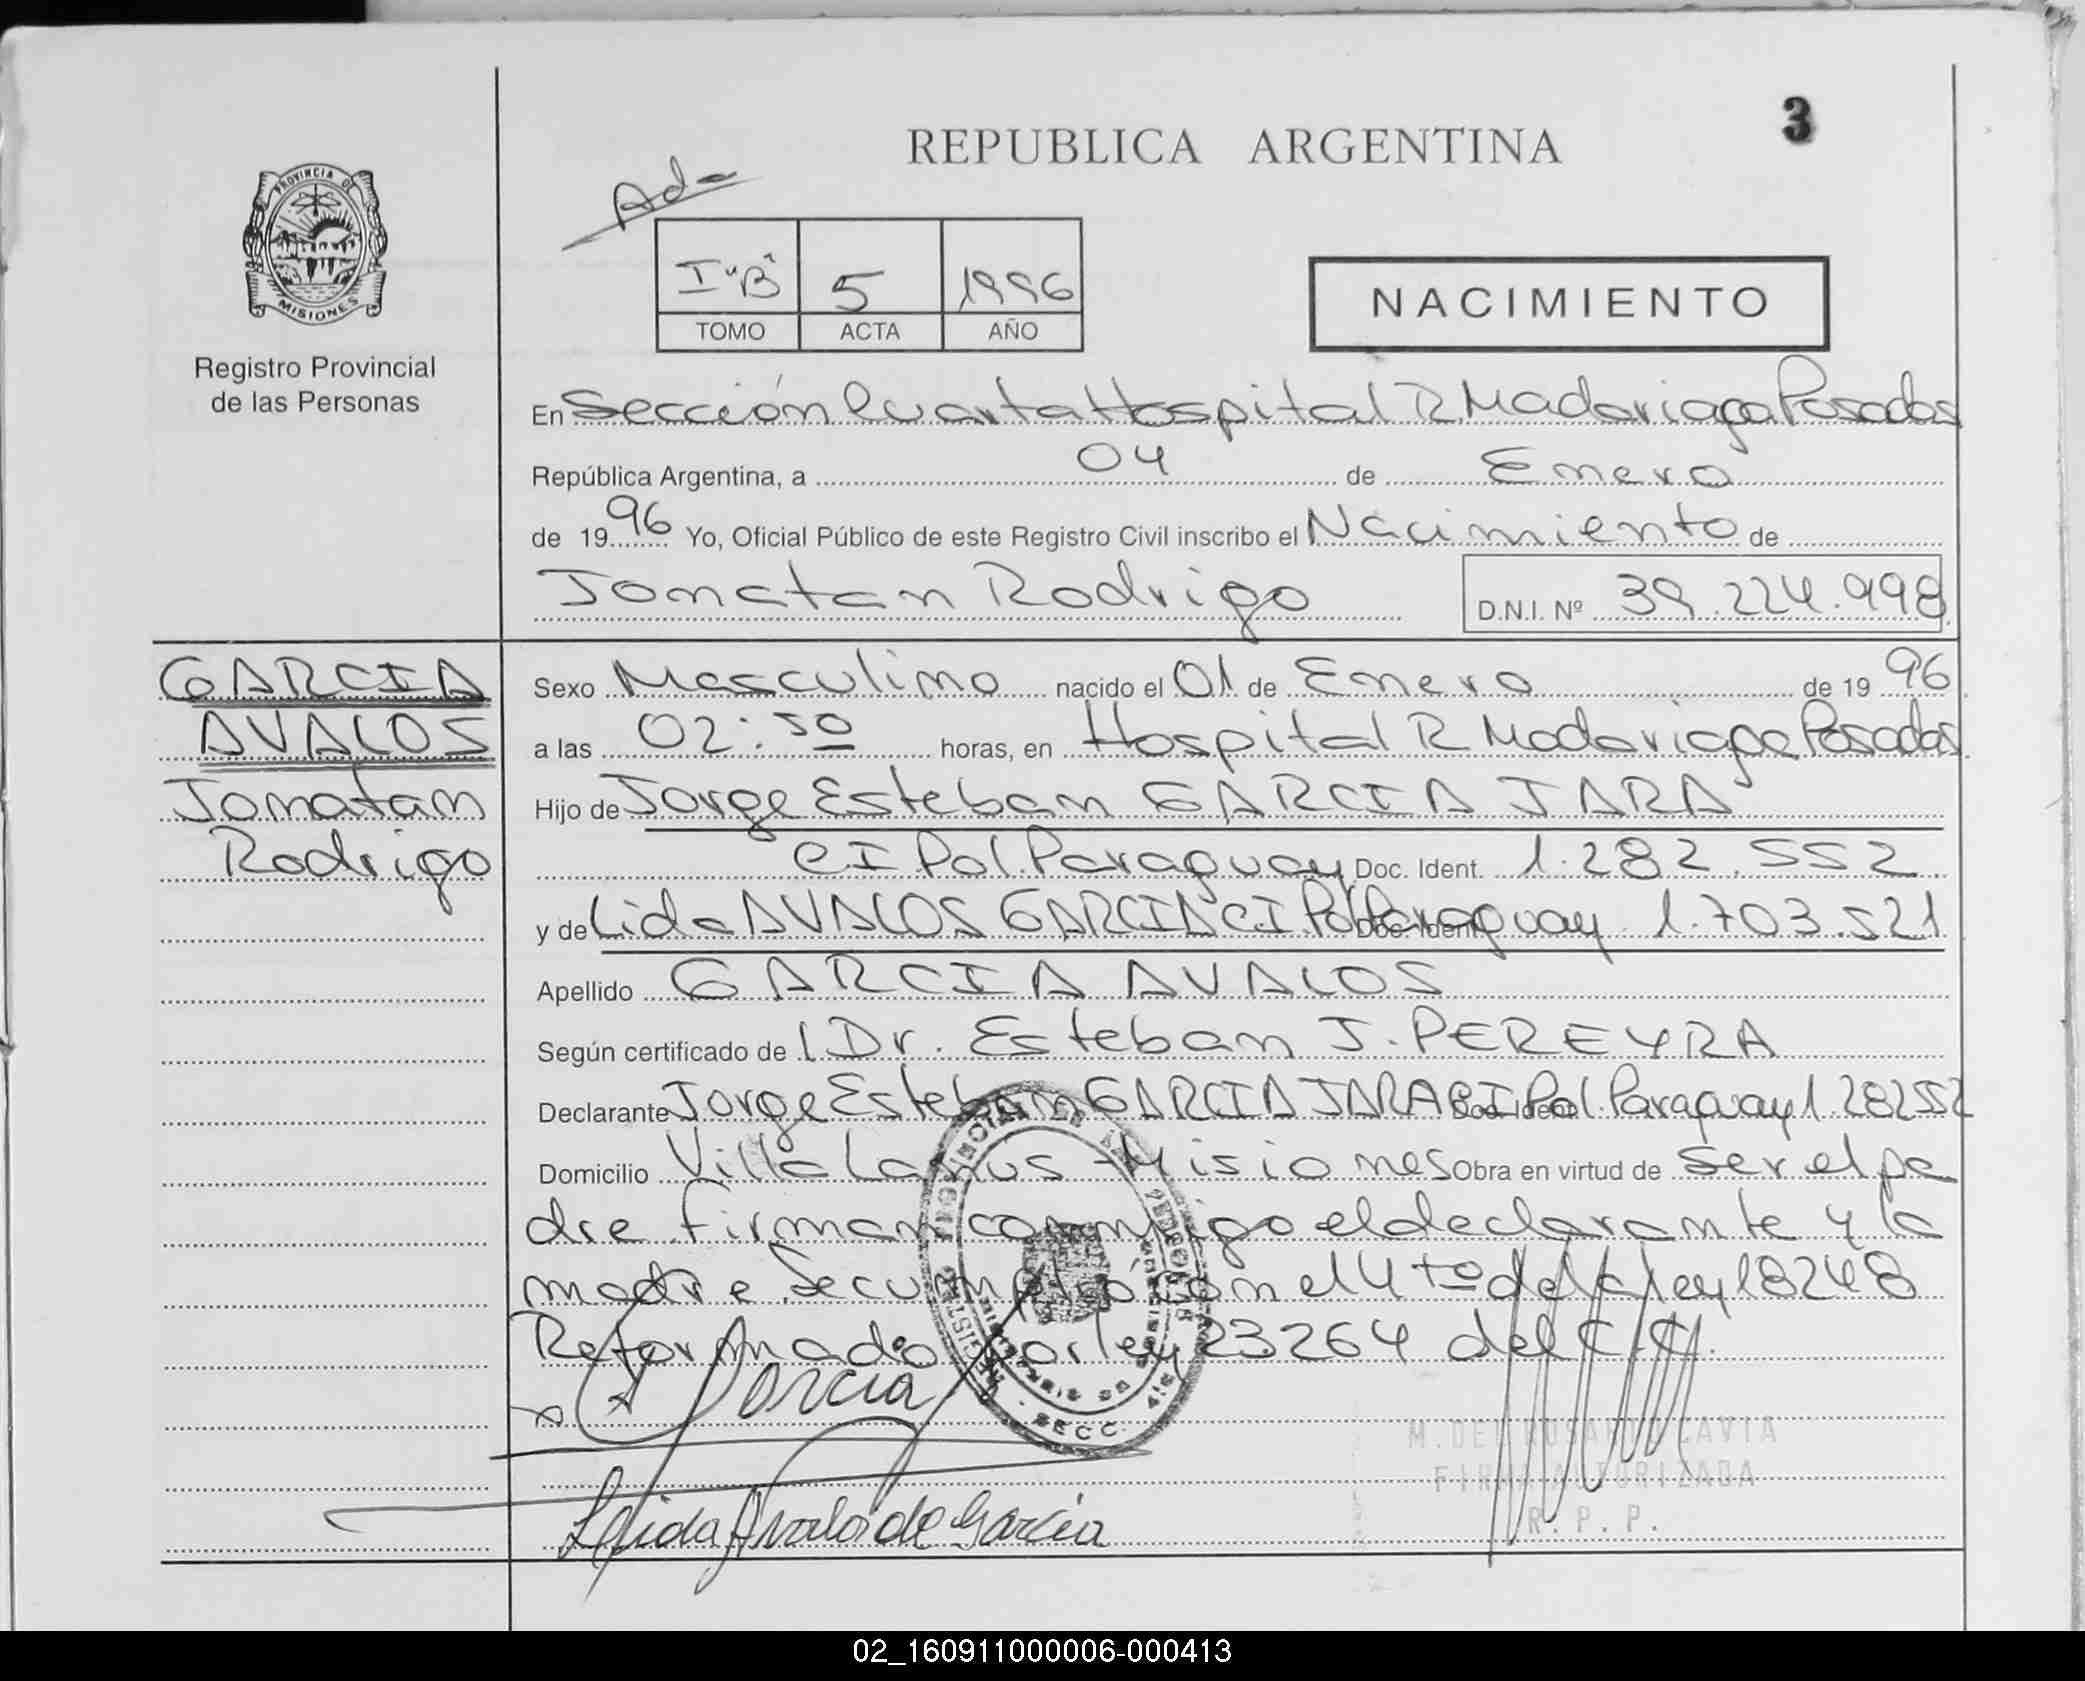 3
REPUBLICA ARGENTINA
Ado
PROVINCIA DE
MISIONES
Registro Provincial
de las Personas
I "B" 5 1996
TOMO ACTA AÑO
NACIMIENTO
En Sección Cuarta Hospital R Madariaga Posadas
República Argentina, a 04 de Enero
de 19 96 Yo, Oficial Público de este Registro Civil inscribo el Nacimiento de
Jonatan Rodrigo D.N.I. Nº 39.224.998
GARCIA
AVALOS
Jonatan
Rodrigo
Sexo Masculino nacido el 01 de Enero de 19 96
a las 02:50 horas, en Hospital R Madariaga Posadas
Hijo de Jorge Esteban GARCIA JARA
CI.Pol.Paraguay Doc. Ident. 1.282.552
y de Lida AVALOS GARCIA CI Pol Paraguay Doc. Ident. 1.703.521
Apellido GARCIA AVALOS
Según certificado de l Dr. Esteban J. PEREYRA
Declarante Jorge Esteban GARCIA JARA CI Pol. Paraguay Doc. Ident. 1.282552
Domicilio Villa Lanus - Misiones Obra en virtud de ser el pa
dre firman conmigo el declarante y la
madre Se cumplió con el 4to de la ley 18248
Reformado por ley 23264 del C.C.
Garcia
Leida Avalos de Garcia
M. DEL ROSARIO GAVIA
FIRMA AUTORIZADA
R. P. P.
02_160911000006-000413